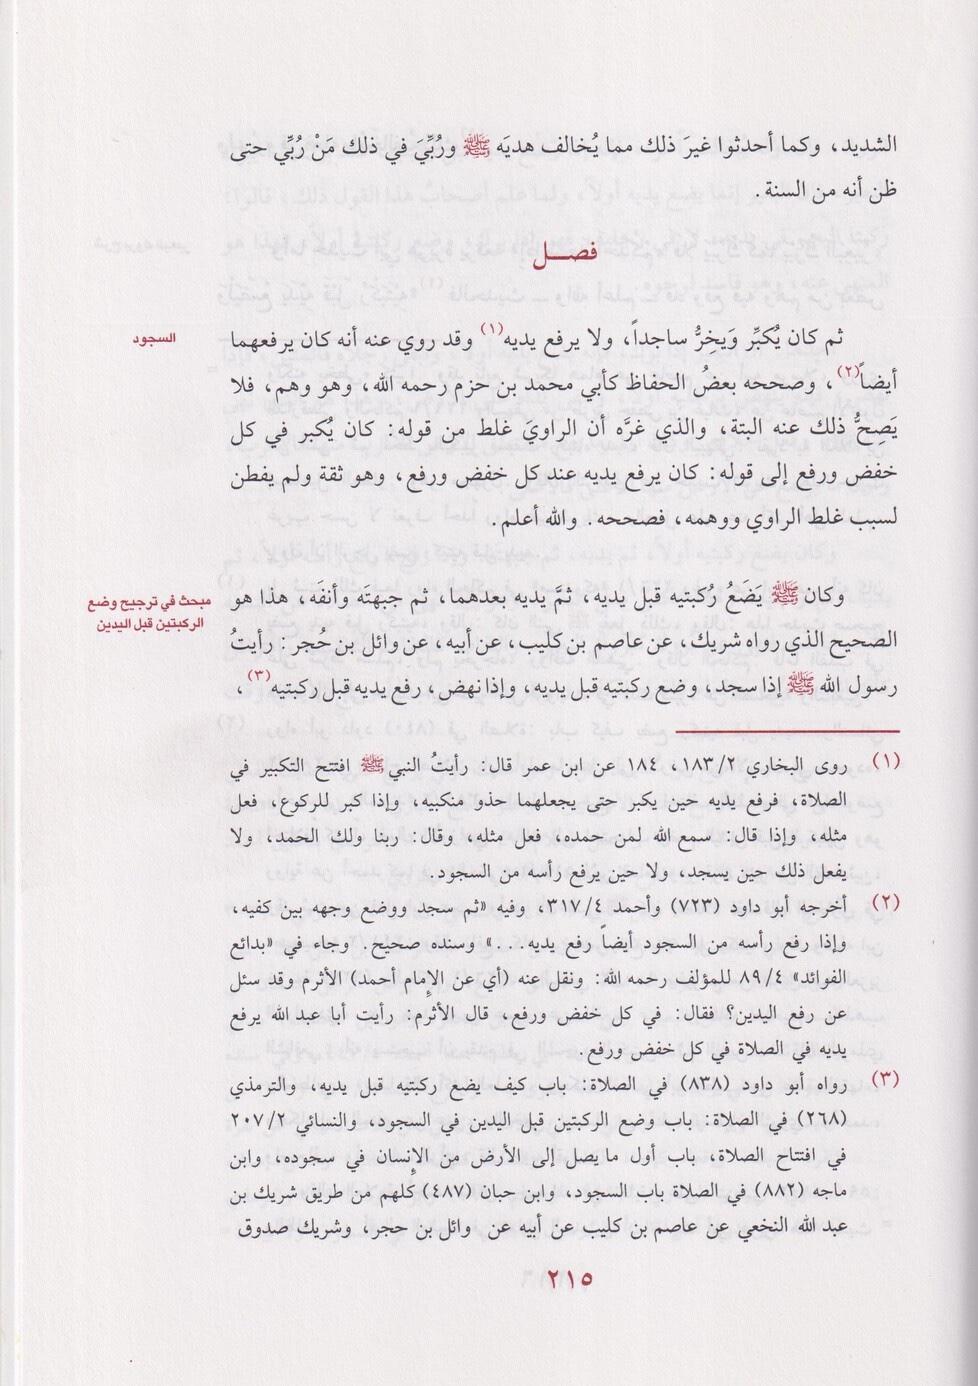 الشديد، وكما أحدثوا غيرَ ذلك مما يُخالف هديَه ﷺ ورُبِّيَ في ذلك مَنْ رُبِّي حتى
ظن أنه من السنة.
فصـــل
السجود
ثم كان يُكبِّر وَيخِرُّ ساجداً، ولا يرفع يديه(١) وقد روي عنه أنه كان يرفعهما
أيضاً(٢)، وصححه بعضُ الحفاظ كأبي محمد بن حزم رحمه الله، وهو وهم، فلا
يَصِحُّ ذلك عنه البتة، والذي غرَّه أن الراويَ غلط من قوله: كان يُكبر في كل
خفض ورفع إلى قوله: كان يرفع يديه عند كل خفض ورفع، وهو ثقة ولم يفطن
لسبب غلط الراوي ووهمه، فصححه. والله أعلم.
مبحث في ترجيح وضع
الركبتين قبل اليدين
وكان ﷺ يَضَعُ رُكبتيه قبل يديه، ثمَّ يديه بعدهما، ثم جبهتَه وأنفَه، هذا هو
الصحيح الذي رواه شريك، عن عاصم بن كليب، عن أبيه، عن وائل بن حُجر: رأيتُ
رسول الله ﷺ إذا سجد، وضع ركبتيه قبل يديه، وإذا نهض، رفع يديه قبل ركبتيه(٣)،
(١) روى البخاري ١٨٣/٢، ١٨٤ عن ابن عمر قال: رأيتُ النبي ﷺ افتتح التكبير في
الصلاة، فرفع يديه حين يكبر حتى يجعلهما حذو منكبيه، وإذا كبر للركوع، فعل
مثله، وإذا قال: سمع الله لمن حمده، فعل مثله، وقال: ربنا ولك الحمد، ولا
يفعل ذلك حين يسجد، ولا حين يرفع رأسه من السجود.
(٢) أخرجه أبو داود (٧٢٣) وأحمد ٣١٧/٤، وفيه «ثم سجد ووضع وجهه بين كفيه،
وإذا رفع رأسه من السجود أيضاً رفع يديه...» وسنده صحيح. وجاء في «بدائع
الفوائد» ٨٩/٤ للمؤلف رحمه الله: ونقل عنه (أي عن الإمام أحمد) الأثرم وقد سئل
عن رفع اليدين؟ فقال: في كل خفض ورفع، قال الأثرم: رأيت أبا عبد الله يرفع
يديه في الصلاة في كل خفض ورفع.
(٣) رواه أبو داود (٨٣٨) في الصلاة: باب كيف يضع ركبتيه قبل يديه، والترمذي
(٢٦٨) في الصلاة: باب وضع الركبتين قبل اليدين في السجود، والنسائي ٢٠٧/٢
في افتتاح الصلاة، باب أول ما يصل إلى الأرض من الإنسان في سجوده، وابن
ماجه (٨٨٢) في الصلاة باب السجود، وابن حبان (٤٨٧) كلهم من طريق شريك بن
عبد الله النخعي عن عاصم بن كليب عن أبيه عن وائل بن حجر، وشريك صدوق
٢١٥